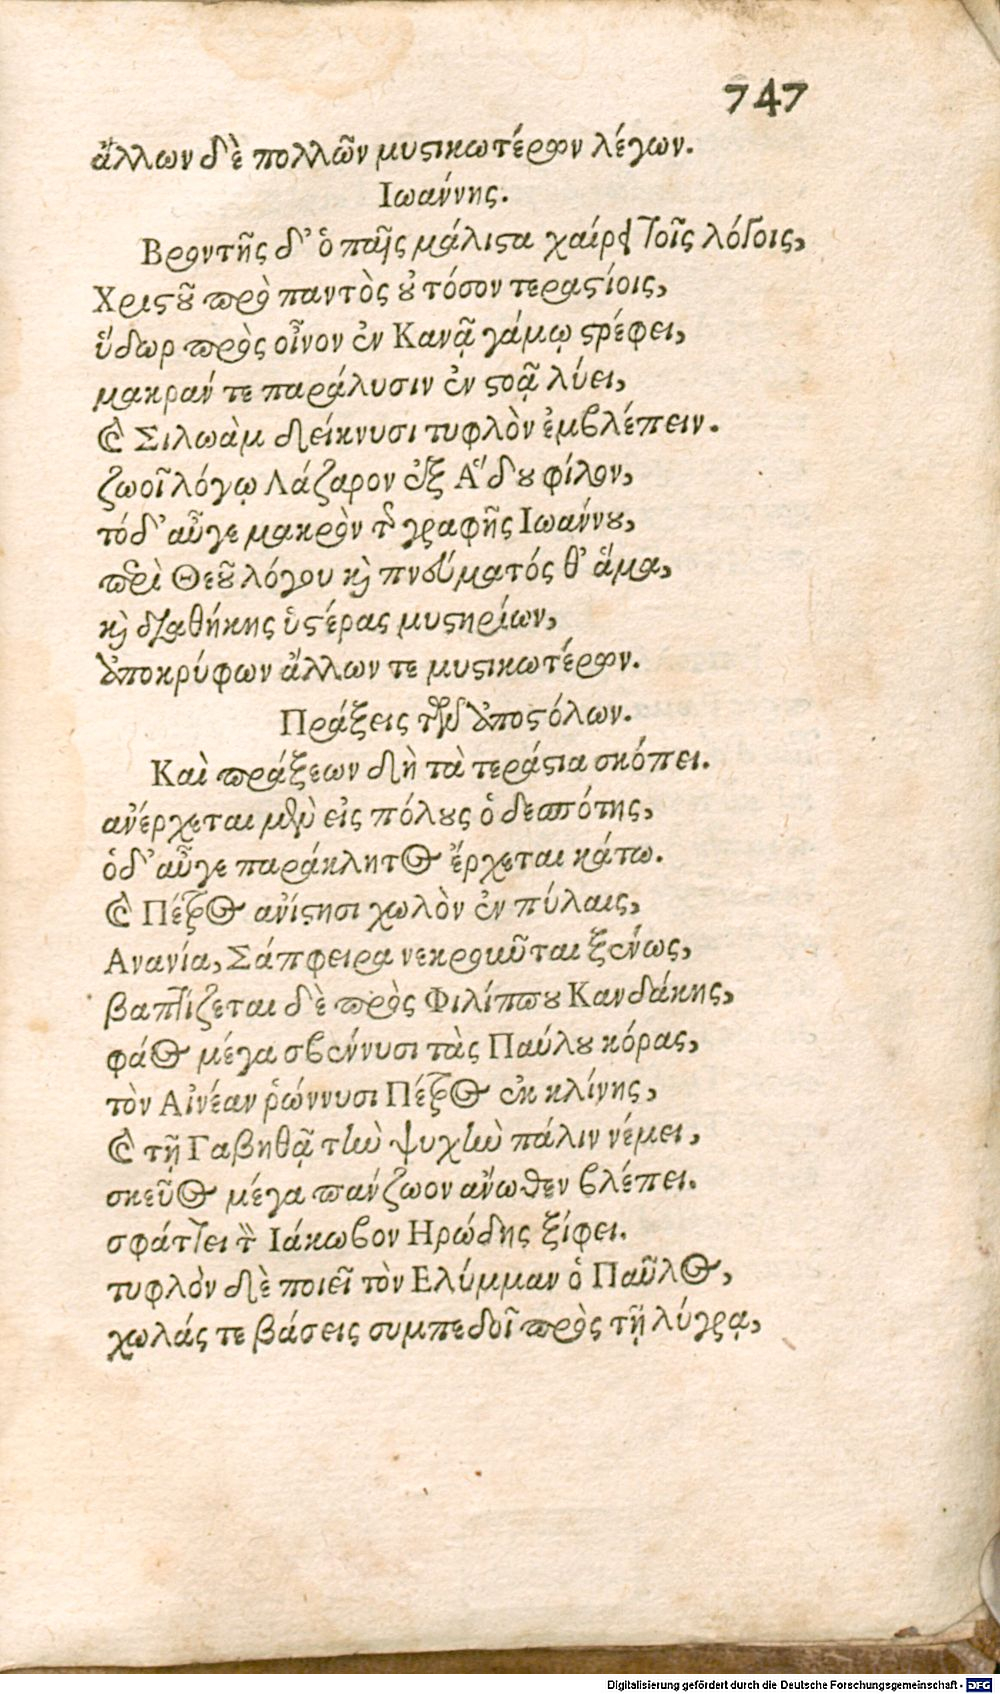 747
ἄλλων δὲ πολλῶν μυστικωτέρων λέγων.
Ἰωάννης.
Βροντῆς δ' ὁ παῖς μάλιστα χαίρει τοῖς λόγοις,
Χριστοῦ πρὸ παντὸς οὐ τόσον τεραστίοις,
ὕδωρ πρὸς οἶνον ἐν Κανᾷ γάμῳ στρέφει,
μακράν τε παράλυσιν ἐν στοᾷ λύει,
ἐν Σιλωὰμ δείκνυσι τυφλὸν ἐμβλέπειν.
ζωοῖ λόγῳ Λάζαρον ἐξ Ἅδου φίλον,
τόδ' αὖγε μακρὸν τῆς γραφῆς Ἰωάννου,
περὶ Θεοῦ λόγου καὶ πνεύματός θ' ἅμα,
καὶ διαθήκης ὑστέρας μυστηρίων,
ἀποκρύφων ἄλλων τε μυστικωτέρων.
Πράξεις τῶν ἀποστόλων.
Καὶ πράξεων δὴ τὰ τεράστια σκόπει.
ἀνέρχεται μὲν εἰς πόλους ὁ δεσπότης,
ὁδ' αὖγε παράκλητος ἔρχεται κάτω.
ἐν Πέτρος ἀνίστησι χωλὸν ἐν πύλαις,
Ἀνανία, Σάπφειρα νεκροῦνται ξένως,
βαπτίζεται δὲ πρὸς Φιλίππου Κανδάκης,
φάος μέγα σβέννυσι τὰς Παύλου κόρας,
τὸν Αἰνέαν ῥώννυσι Πέτρος ἐκ κλίνης,
ἐν τῇ Γαβηθᾷ τὴν ψυχὴν πάλιν νέμει,
σκεῦος μέγα πανζωον ἄνωθεν βλέπει.
σφάττει τὸν Ἰάκωβον Ἡρώδης ξίφει.
τυφλὸν δὲ ποιεῖ τὸν Ελύμμαν ὁ Παῦλος,
χωλάς τε βάσεις συμπεδοῖ πρὸς τῇ λύγρᾳ,
Digitalisierung gefördert durch die Deutsche Forschungsgemeinschaft - DFG